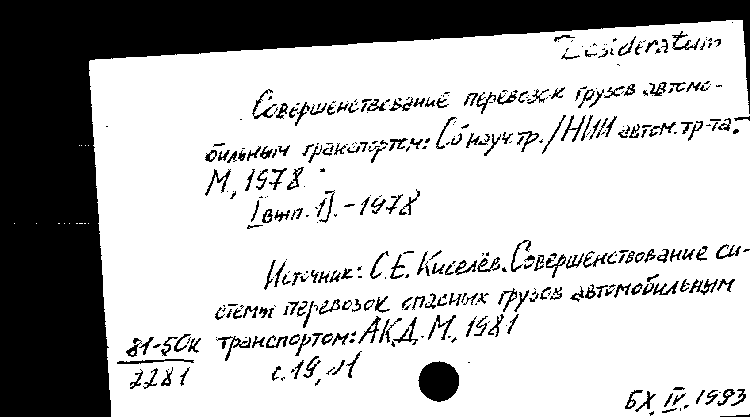 Desideratum
Совершенствование перевозок грузов автомо-
бильным транспортом: Сб науч.тр./НИИ автом.тр-та.
М, 1978.
[вып. 1]. - 1978
Источник: С.Е. Киселёв. Совершенствование си-
стемы перевозок опасных грузов автомобильным
81-50к транспортом: АКД. М, 1981
2281 с. 19, №1
БХ. IV. 1993